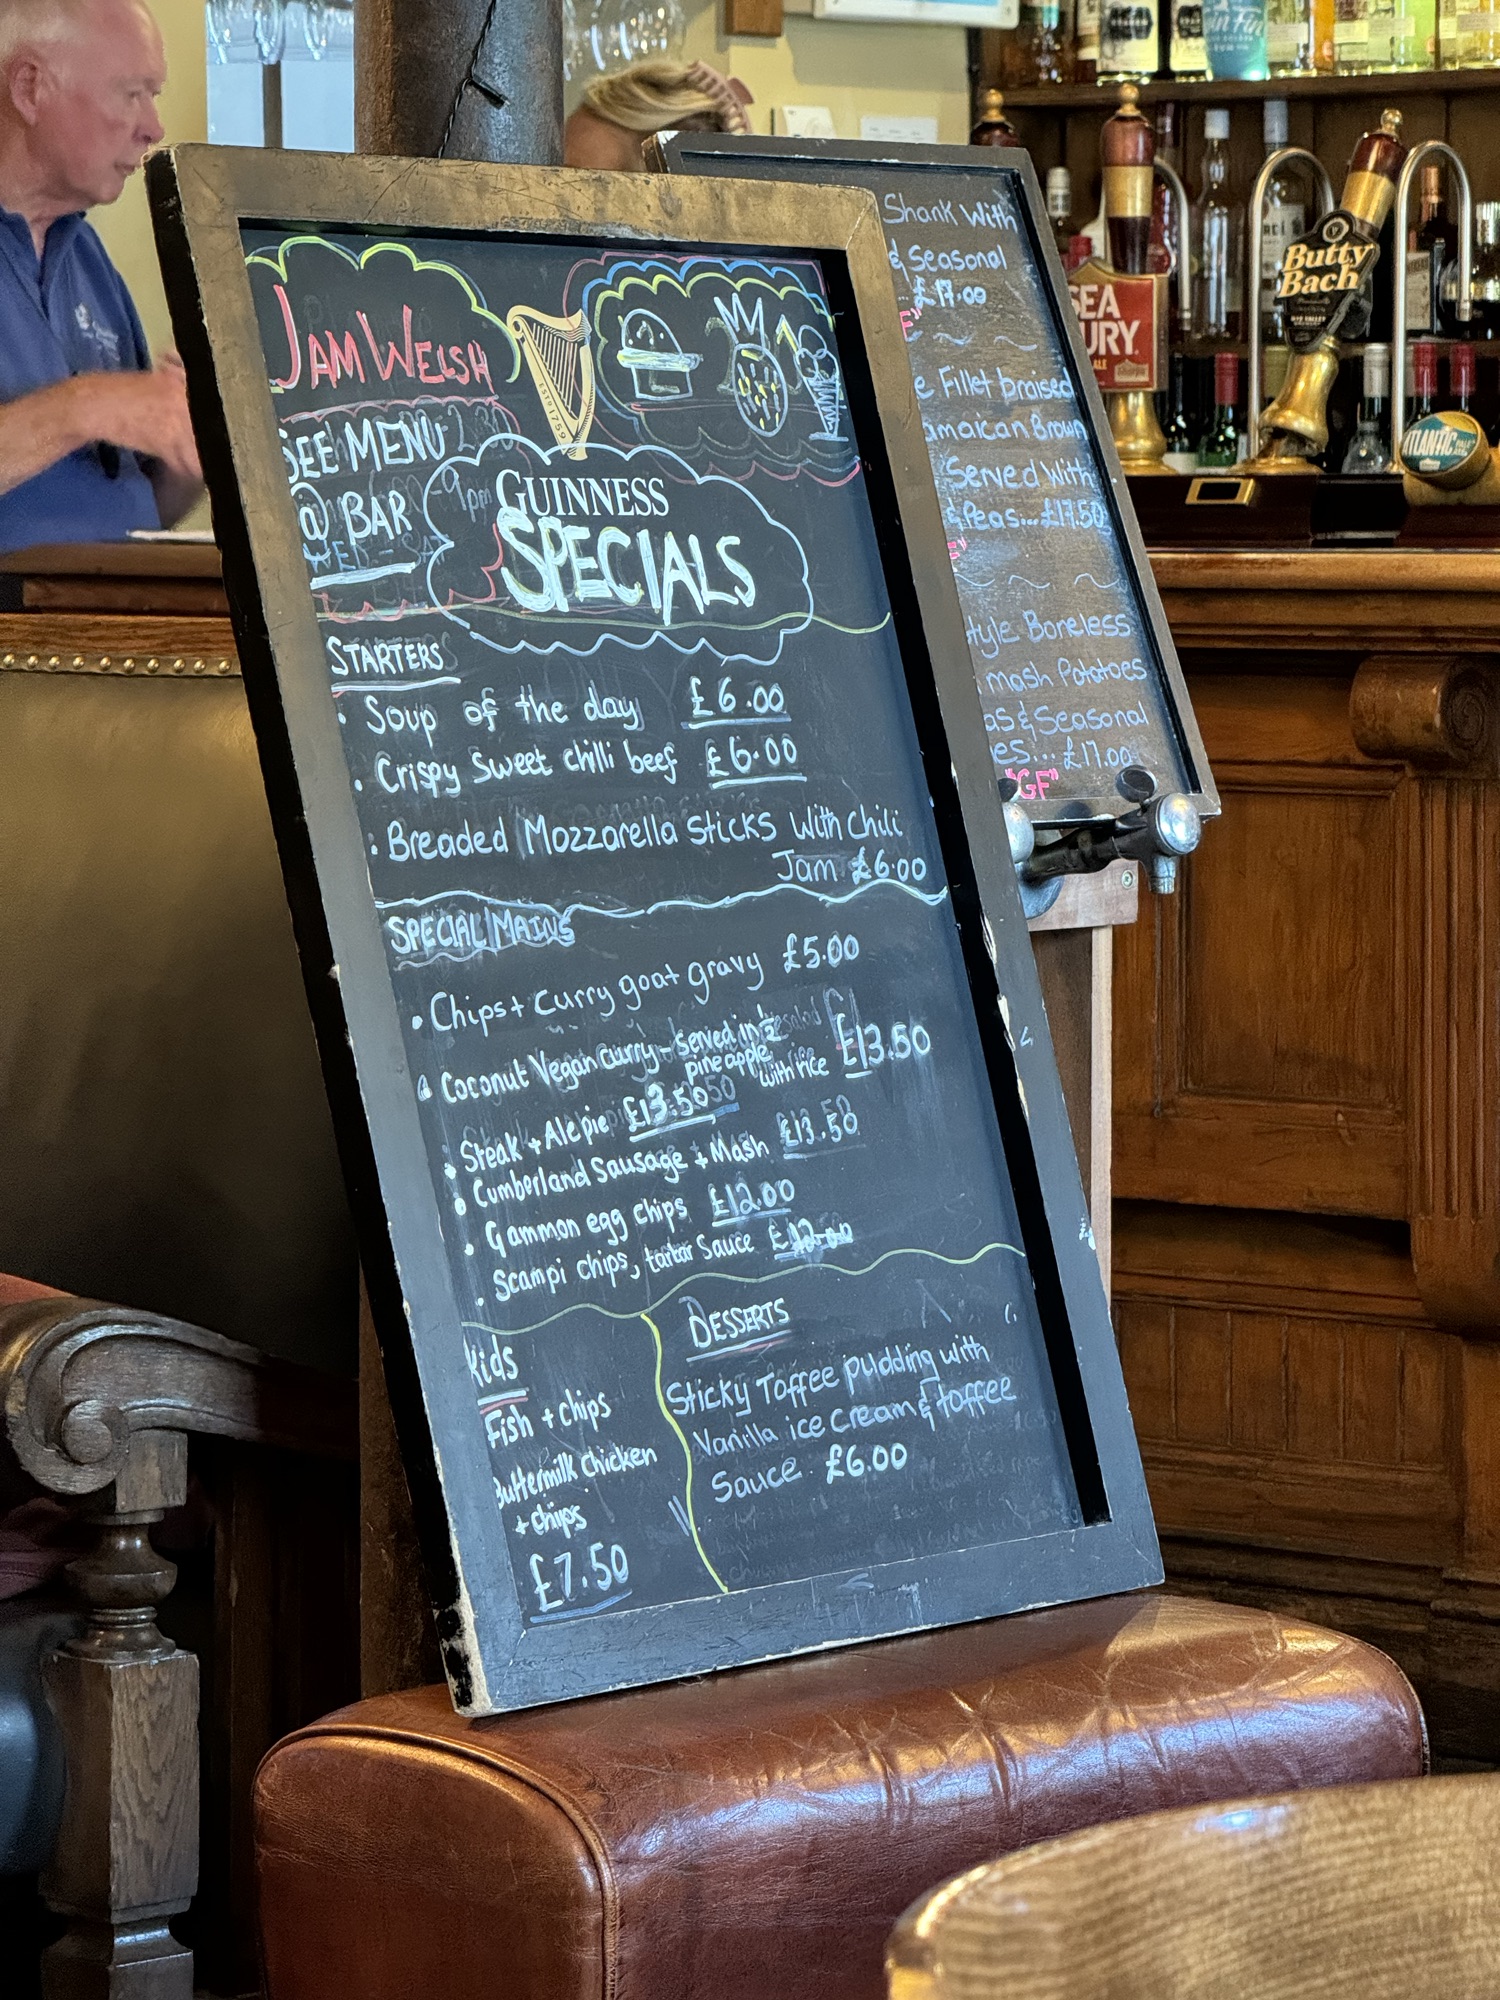 JAM WELSH
SEE MENU
@ BAR
ESTD 1759
GUINNESS
SPECIALS
STARTERS
• Soup of the day £6.00
• Crispy Sweet chilli beef £6.00
• Breaded Mozzarella sticks with chili
Jam £6.00
SPECIAL MAINS
• Chips + curry goat gravy £5.00
• Coconut Vegan curry - served in ½
pineapple with rice £13.50
• Steak + Ale pie £13.50
• Cumberland Sausage + Mash £13.50
• Gammon egg chips £12.00
• Scampi chips, tartar Sauce £12.00
Kids
Fish + chips
Buttermilk Chicken
+ chips
£7.50
DESSERTS
Sticky Toffee pudding with
Vanilla ice cream & toffee
Sauce £6.00
Shank With
& Seasonal
.. £17.00
e Fillet braised
amaican Brown
Served With
& Peas... £17.50
tyle Boneless
mash Potatoes
as & Seasonal
es... £17.00
"GF"
SEA
URY
ALE
Butty
Bach
ATLANTIC